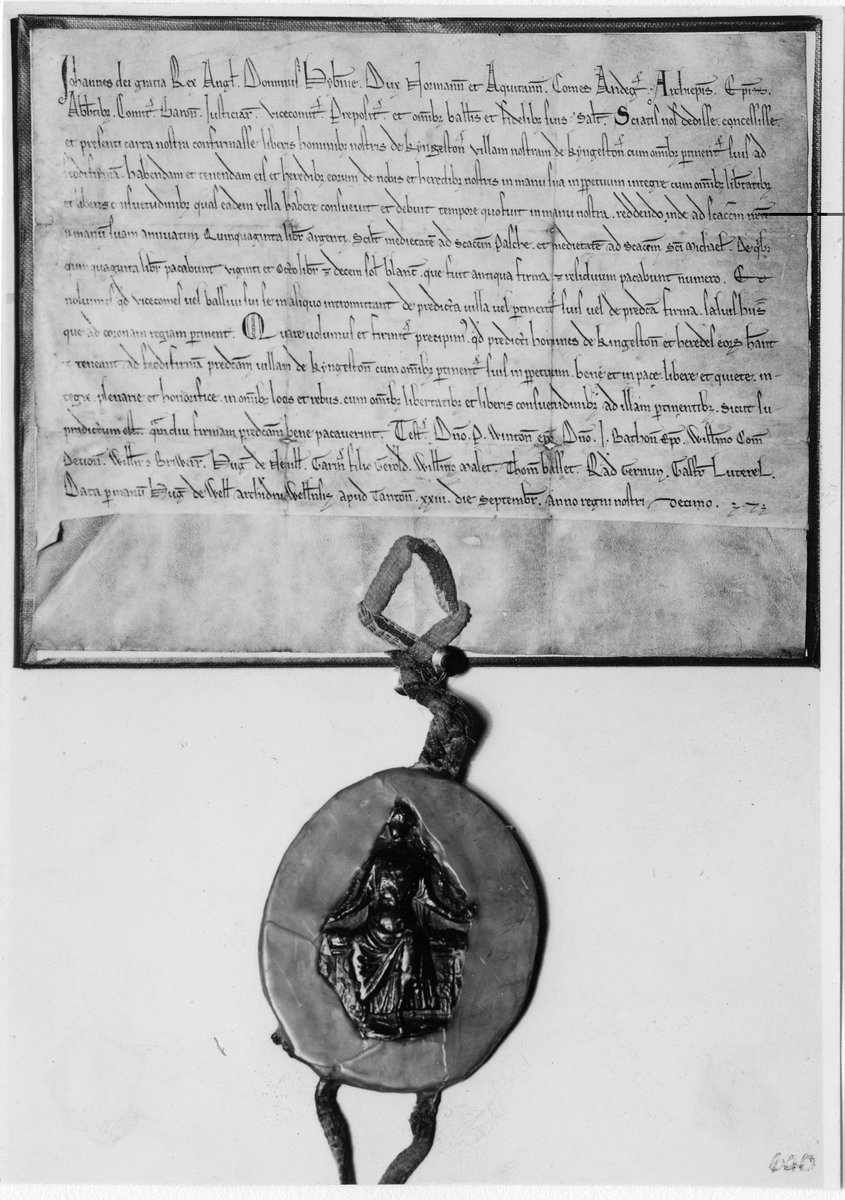 Johannes dei gratia Rex Angl̄. Dominus Hyb̄nie. Dux Normann̄ et Aquitann̄. Comes Andeg̃. Archiep̄is. Ep̄is.
Abb̄tibȝ. Comit̃. Baron̄. Justiciar̄. vicecomit̃. Preposit̃. et om̄ibȝ ball̄is et fidelibȝ suis salt̄. Sciatis nos dedisse. concessisse.
et presenti carta nostra confirmasse liberis hominibȝ nostris de kyngeston̄ villam nostram de kyngeston̄ cum om̄ibȝ ꝑtinent̃ suis ad
feodifirmā. habendam et tenendam eis et heredibȝ eorum de nobis et heredibȝ nostris in manu sua in ꝑpetuum integre cum om̄ibȝ lib̄tatibȝ
et liberis consuetudinibȝ quas eadem villa habere consuevit et debuit tempore quo fuit in manu nostra. reddendo inde ad scaccm̄ nr̄m
ꝑ manū suam annuatim Quinquaginta libr̄ argenti. Scil̄t medietatē ad scaccm̄ Pasche. et medietatē ad scaccm̄ Sc̄i Michael̄. De qibȝ
quinquaginta libr̄ pacabunt viginti et Octo libr̄ ⁊ decem sol̄ blanc̄. que fuit antiqua firma ⁊ residuum pacabunt numero. Et
nolumus qd̄ vicecomes vel ballivi sui se in aliquo intromittant de predicta villa vel ꝑtinent̃ suis vel de predc̄a firma. salvis hiis
que ad coronam regiam ꝑtinent. Quare volumus et firmit̃ precipim̃. qd̄ predicti homines de kingeston̄ et heredes eorȝ habeant
et teneant ad feodifirmā predc̄am villam de kyngeston̄ cum om̄ibȝ ꝑtinent̃ suis in ꝑpetuum. bene et in pace. libere et quiete. in-
tegre. plenarie et honorifice. in om̄ibȝ locis et rebus. cum om̄ibȝ libertatibȝ et liberis consuetudinibȝ ad illam ꝑtinentibȝ. Sicut su
predictum est. qm̄diu firmam predc̄am bene pacaverint. Test̃. Dn̄o. P. Winton̄ ep̄o. Dn̄o. J. Bathon̄ Ep̄o. Will̄mo Com̄
Devon̄. Will̄mo Briwerr̄. Hug̃ de Nevill̄. Garin̄ filio Gerold̄. Will̄mo Malet. Thom̄ basset. Rad̄ Gernun̄. Galf̄r Luterel.
Data ꝑ manū Hug̃ de Well̄ archid̄ni Well̄nsis apud Tanton̄. xxiii. die Septembr̄. Anno regni nostri Decimo.